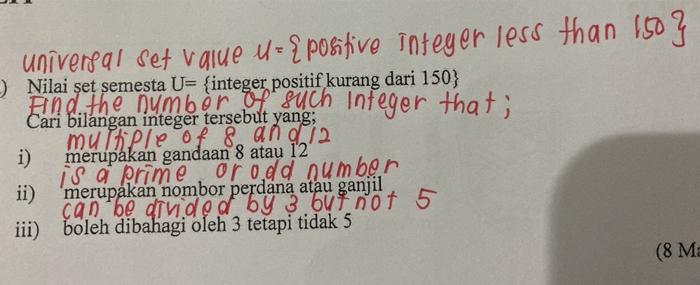 universal set value U = {positive integer less than 150}
) Nilai set semesta U= {integer positif kurang dari 150}
Find the number of such integer that;
Cari bilangan integer tersebut yang;
multiple of 8 and 12
i) merupakan gandaan 8 atau 12
is a prime or odd number
ii) merupakan nombor perdana atau ganjil
can be divided by 3 but not 5
iii) boleh dibahagi oleh 3 tetapi tidak 5
(8 Ma